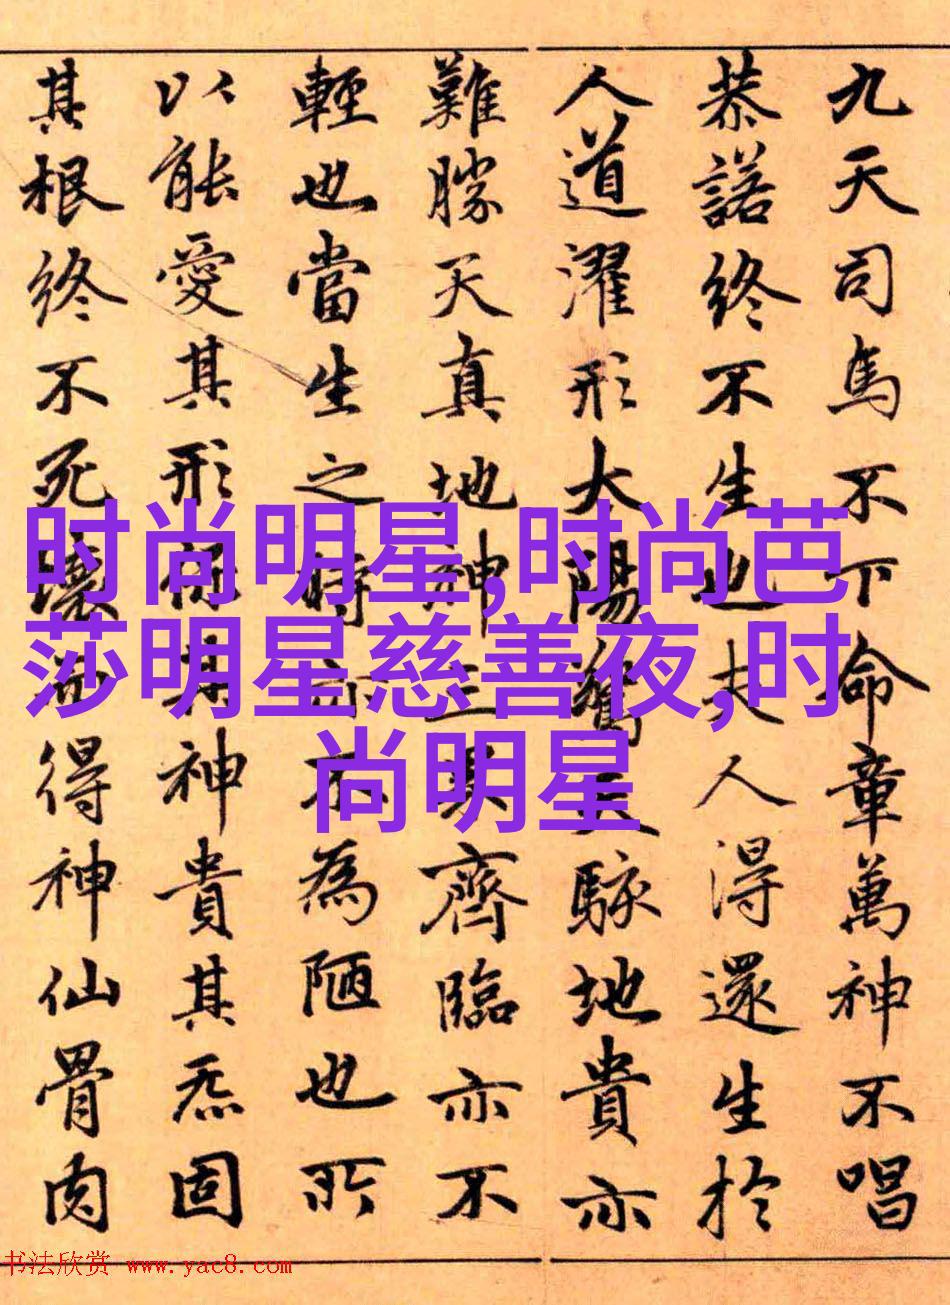 九天司馬不下命章萬神不唱
恭諾終不生也夫人得還生於
人道濯形太陽驚天駭地貴亦
難勝天真地神三界齊臨亦不
輕也當生之時亦不為陋也所
以能愛其形保其神貴其炁固
其根終不死壞而得神仙骨肉
时尚明星,时尚芭
莎明星慈善夜,时
尚明星
书法欣赏 www.yac8.com